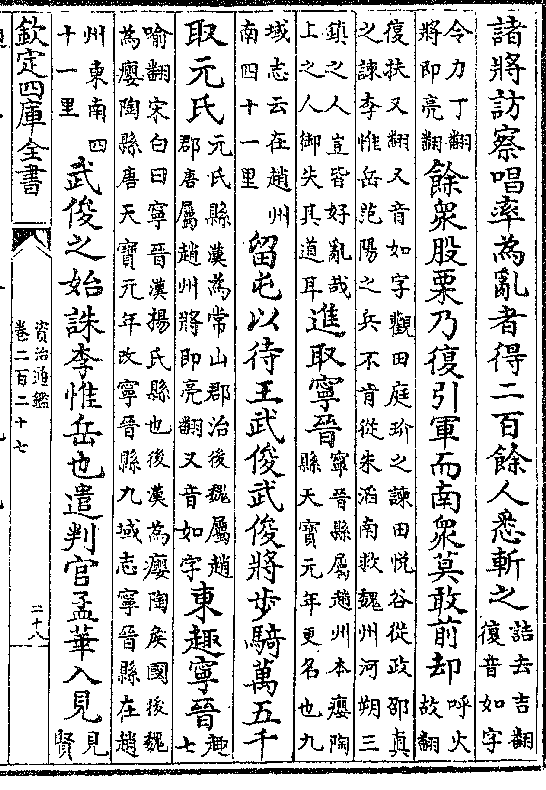 諸將訪察唱率為亂者得二百餘人悉斬之詰去吉翻復音如字
令力丁翻將即亮翻餘衆股栗乃復引軍而南衆莫敢前却呼火故翻
復扶又翻又音如字觀田庭玠之諫田悅谷從政邵真
之諫李惟岳范陽之兵不肯從朱滔南救魏州河朔三
鎮之人豈皆好亂哉上之人御失其道耳進取寧晉寧晉縣屬趙州本癭陶縣天寶元年更名也九
域志云在趙州南四十一里留屯以待王武俊武俊將步騎萬五千
取元氏元氏縣漢為常山郡治後魏屬趙郡唐屬趙州將即亮翻又音如字東趣寧晉趣七
喻翻宋白曰寧晉漢揚氏縣也後漢為癭陶侯國後魏
為癭陶縣唐天寶元年改寧晉縣九域志寧晉縣在趙
州東南四十一里武俊之始誅李惟岳也遣判官孟華入見見賢
欽定四庫全書
資治通鑑
卷二百二十七
二十八